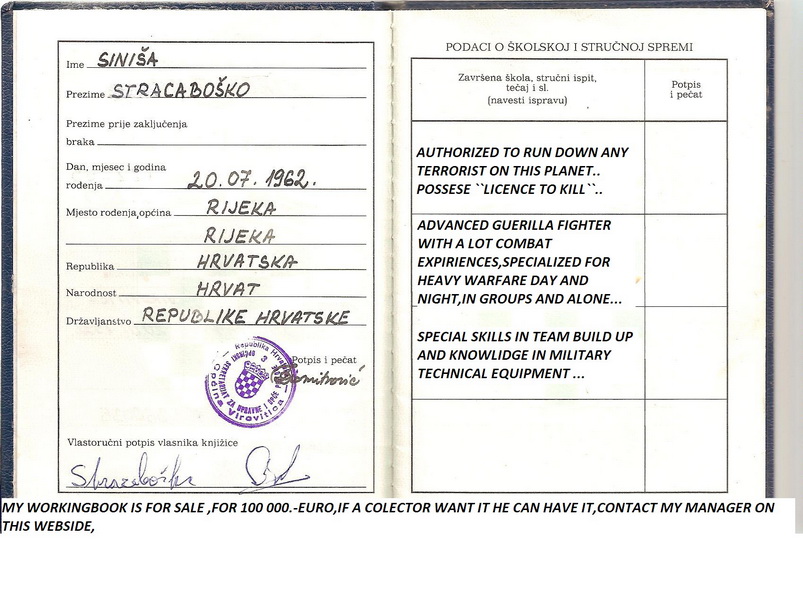 Ime SINIŠA
Prezime STRACABOŠKO
Prezime prije zaključenja
braka
Dan, mjesec i godina
rođenja 20.07.1962.
Mjesto rođenja,općina RIJEKA
RIJEKA
Republika HRVATSKA
Narodnost HRVAT
Državljanstvo REPUBLIKE HRVATSKE
Republika Hrvatska
Općina Virovitica
3
Potpis i pečat
Vlastoručni potpis vlasnika knjižice
PODACI O ŠKOLSKOJ I STRUČNOJ SPREMI
Završena škola, stručni ispit,
tečaj i sl.
(navesti ispravu)
Potpis
i pečat
AUTHORIZED TO RUN DOWN ANY
TERRORIST ON THIS PLANET..
POSSESE ``LICENCE TO KILL``..
ADVANCED GUERILLA FIGHTER
WITH A LOT COMBAT
EXPIRIENCES,SPECIALIZED FOR
HEAVY WARFARE DAY AND
NIGHT,IN GROUPS AND ALONE...
SPECIAL SKILLS IN TEAM BUILD UP
AND KNOWLIDGE IN MILITARY
TECHNICAL EQUIPMENT ...
MY WORKINGBOOK IS FOR SALE ,FOR 100 000.-EURO,IF A COLECTOR WANT IT HE CAN HAVE IT,CONTACT MY MANAGER ON
THIS WEBSIDE,